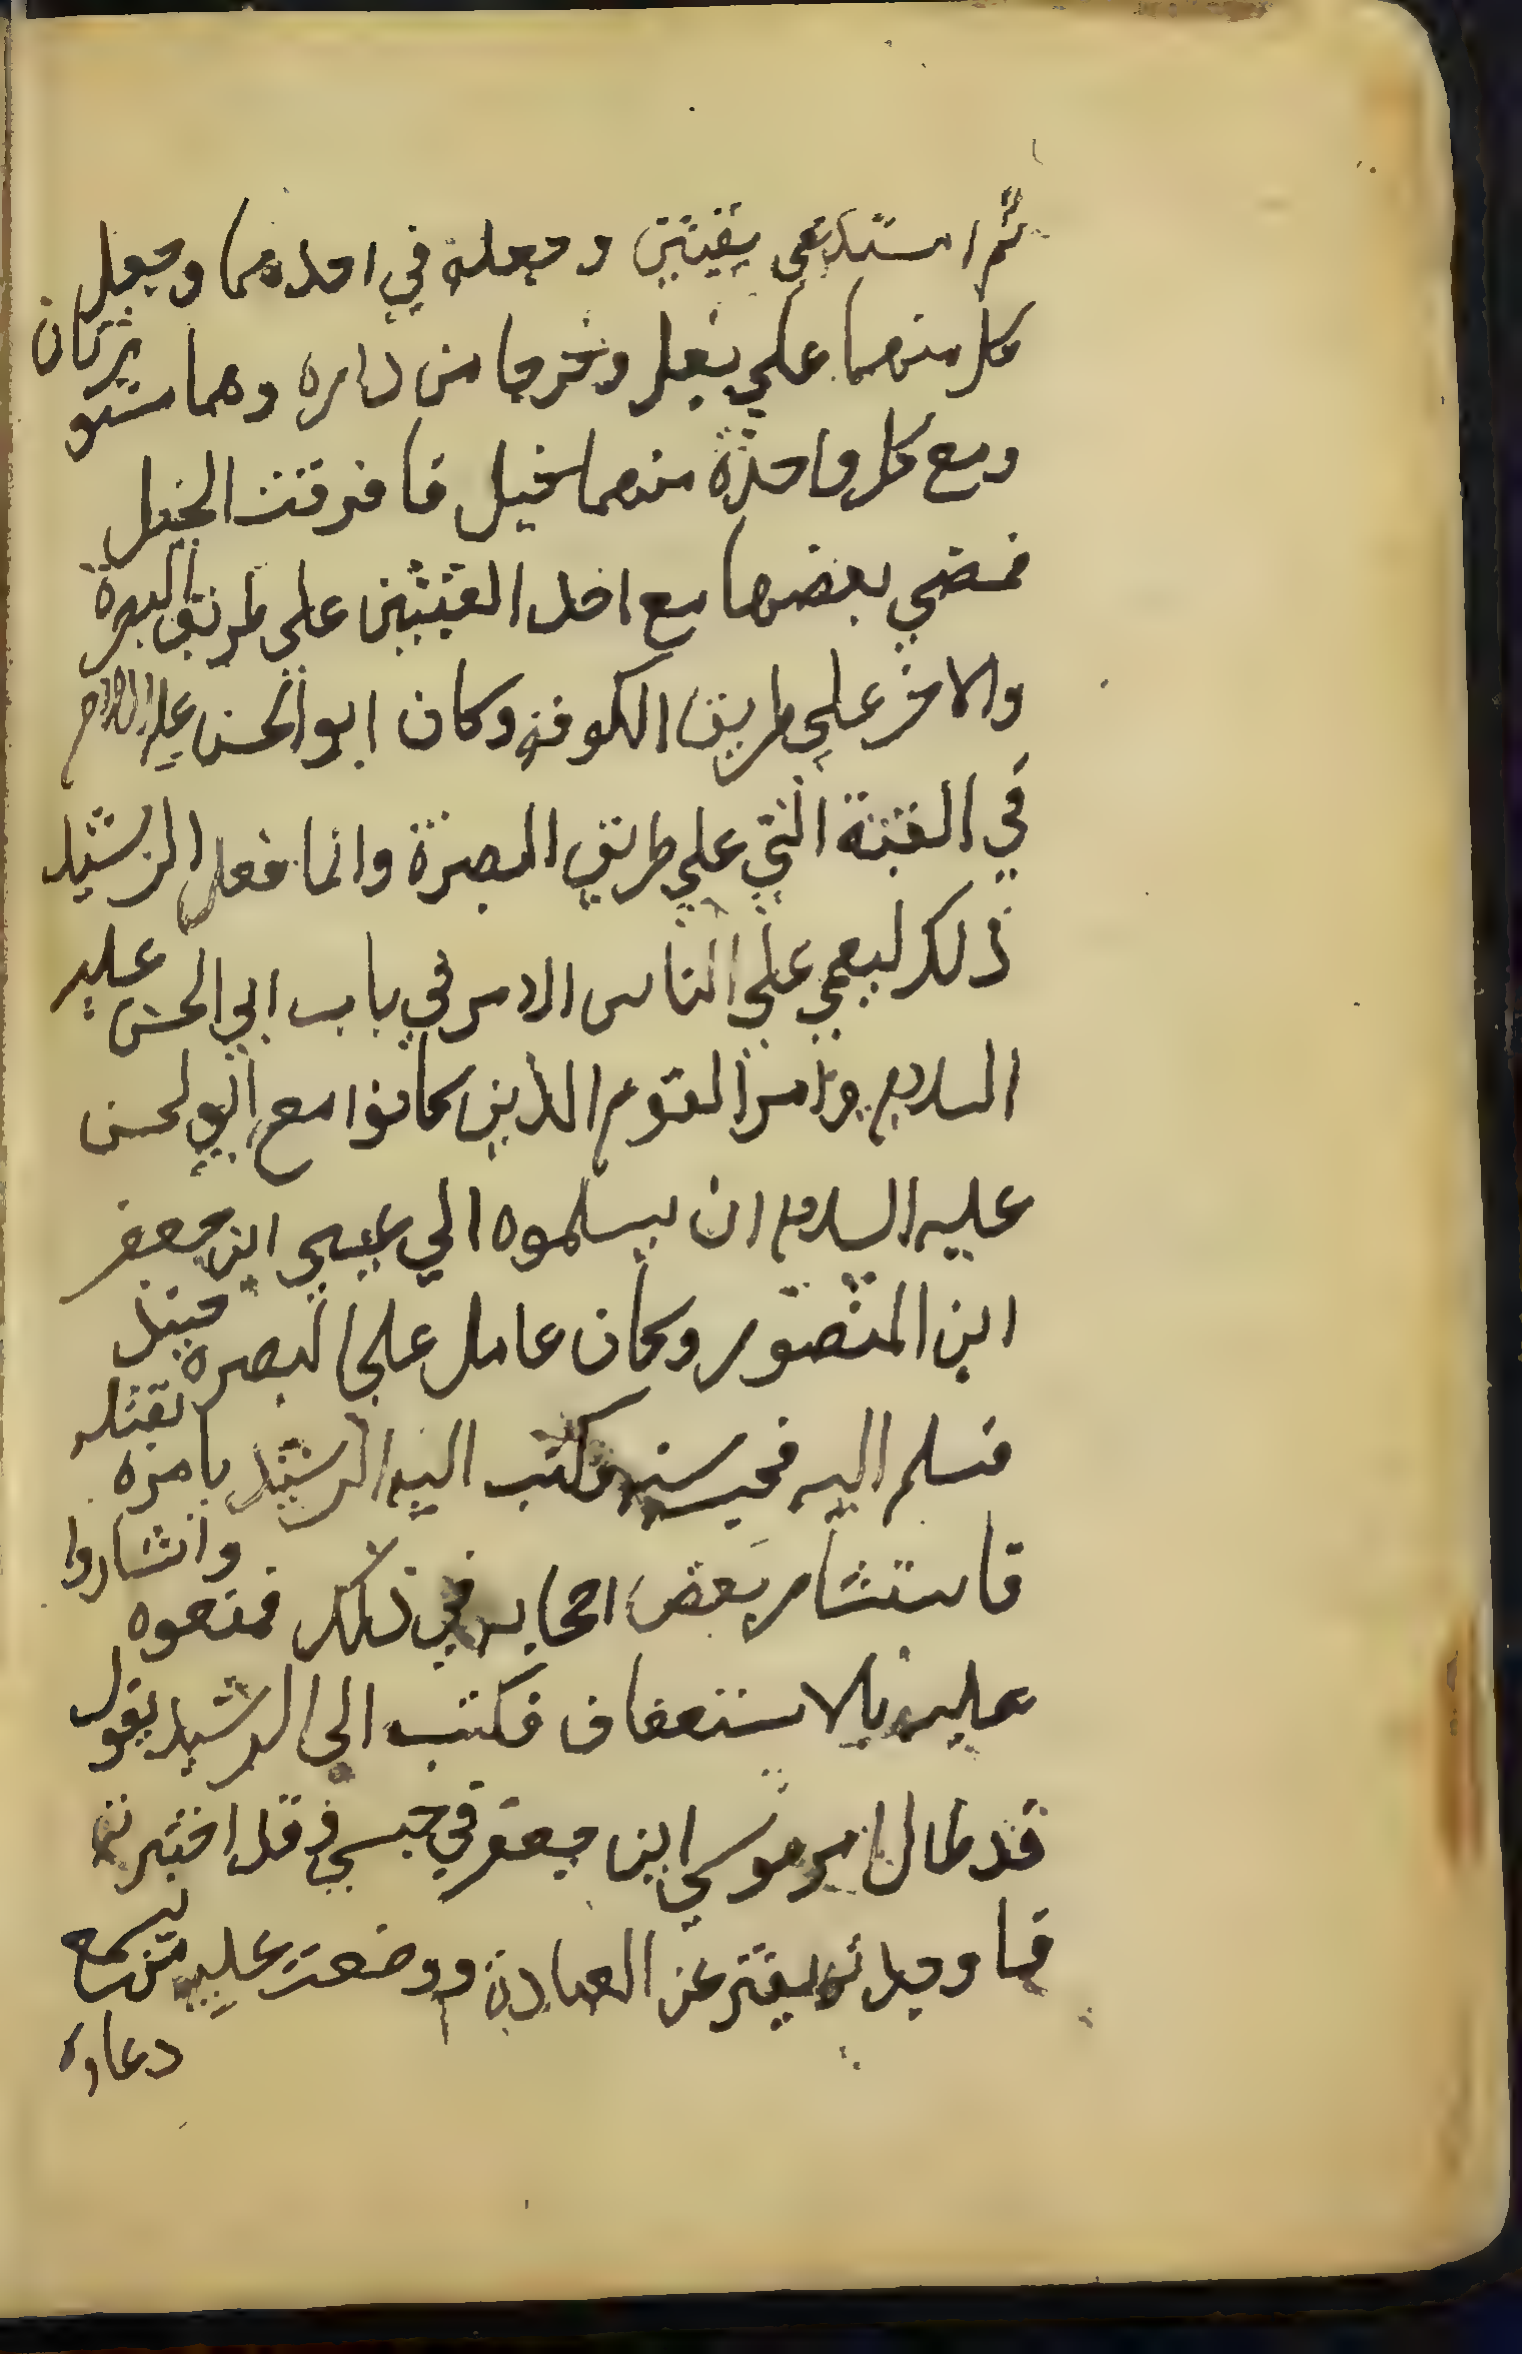 ثم استدعى بقبتين وجعله في احدهما وجعل
كل منهما على بغل وخرجا من داره وهما مستورتان
ومع كل واحدة منهما خيل فافرقت الخيل
فمضي بعضها مع احد القبتين على طريق البصرة
والاخر علي طريق الكوفة وكان ابو الحسن عليه السلام
في القبة التي علي طريق البصرة وانما فعل الرشيد
ذلك ليعمي علي الناس الامر في باب ابي الحسن عليه
السلام وامر القوم الذين كانوا مع ابو لحسن
عليه السلام ان يسلموه الي عيسى ابن جعفر
ابن المنصور وكان عامل على البصرة حينئذ
فسلم اليه فحبسه سنه وكتب اليه الرشيد يامره بقتله
فاستشار بعض اصحابه في ذلك فمنعوه واشاروا
عليه بالاستعفاف فكتب الى الرشيد يقول
قد طال امر موسى ابن جعفر في حبسي وقد اختبرته
فما وجدته يفتر عن العبادة ووضعت عليه من يسمع
دعاوه